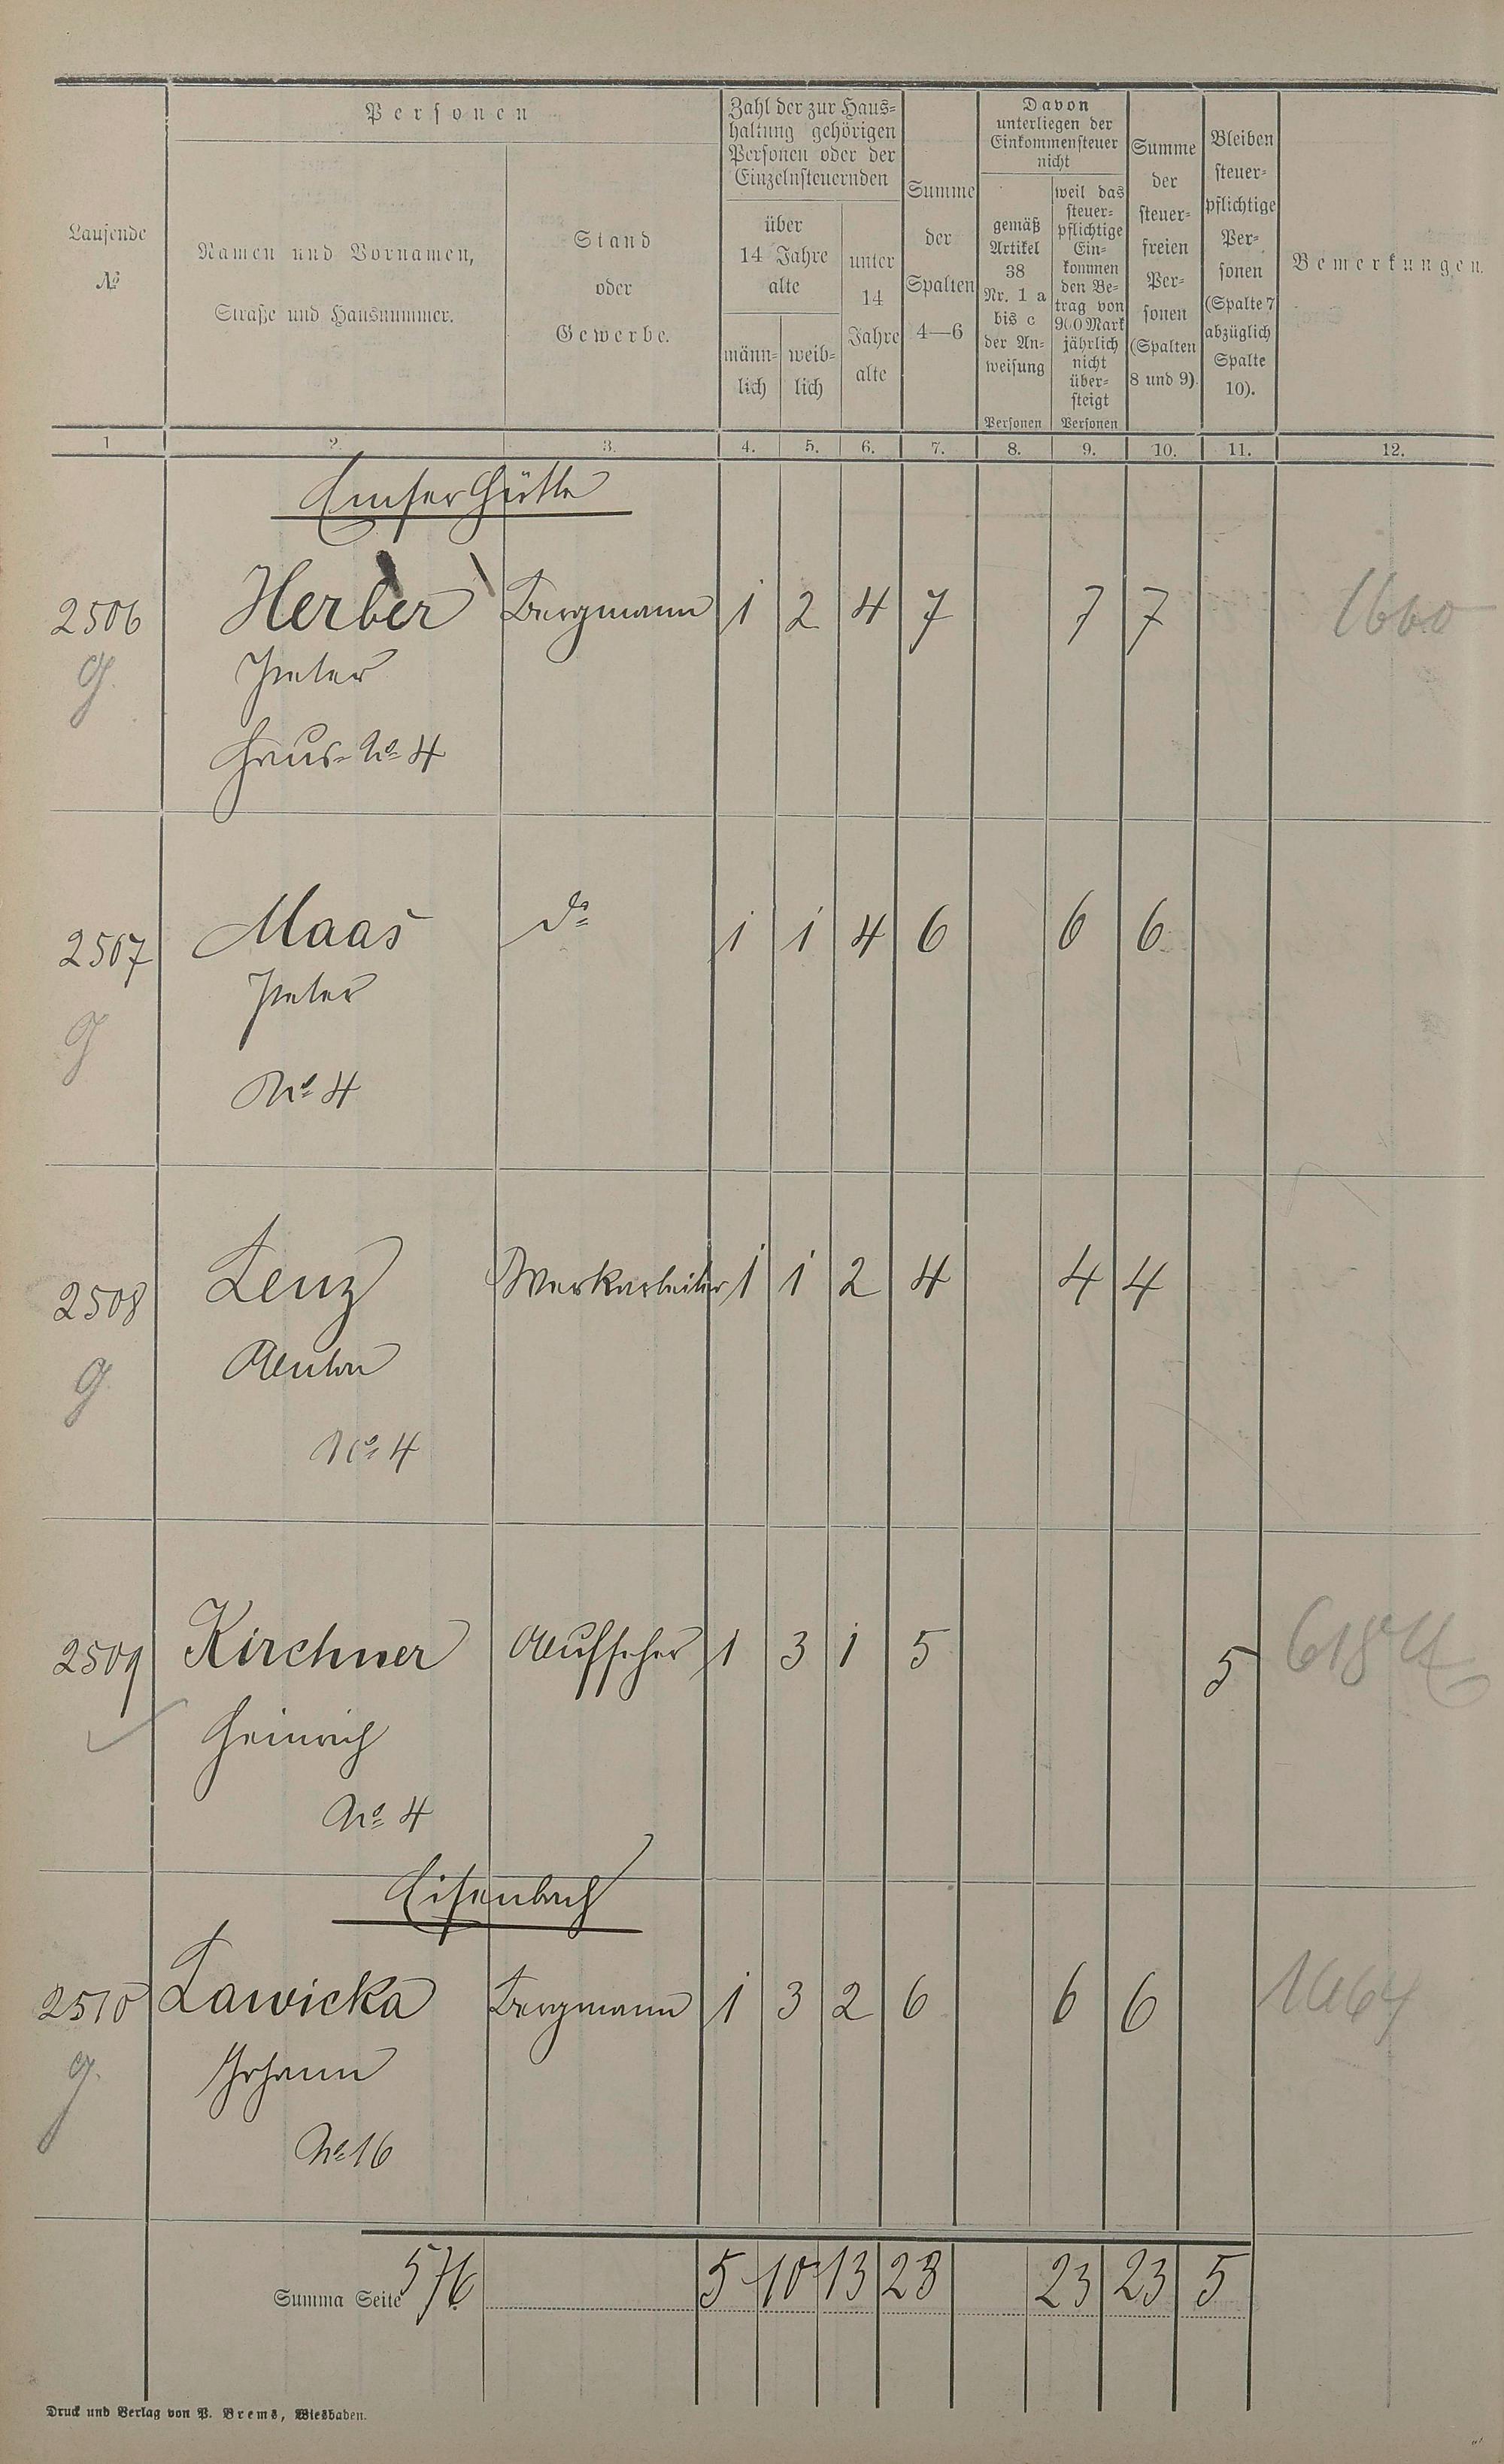 Personen
Zahl der zur Haus-
haltung gehörigen
Personen oder der
Einzelnsteuernden
Davon
unterliegen der
Einkommensteuer
nicht
Laufende
№
Namen und Vornamen,
Straße und Hausnummer.
Stand
oder
Gewerbe.
über
14 Jahre
alte
männ-
lich
weib-
lich
unter
14
Jahre
alte
Summe
der
Spalten
4—6
gemäß
Artikel
38
Nr. 1 a
bis c
der An-
weisung
Personen
weil das
steuer-
pflichtige
Ein-
kommen
den Be-
trag von
900 Mark
jährlich
nicht
über-
steigt
Personen
Summe
der
steuer-
freien
Per-
sonen
(Spalten
8 und 9).
Bleiben
steuer-
pflichtige
Per-
sonen
(Spalte 7
abzüglich
Spalte
10).
Bemerkungen.
1 2. 3. 4. 5. 6. 7. 8. 9. 10. 11. 12.
Emser Hütte
2506 Herber Bergmann 1 2 4 7 7 7 1660
g. Peter
Haus-No 4
2507 Maas do 1 1 4 6 6 6
g Peter
No 4
2508 Lenz Werkarbeiter 1 1 2 4 4 4
g Anton
No 4
2509 Kirchner Aufseher 1 3 1 5 5
Heinrich
No 4
Eisenbach
2510 Lawicka Bergmann 1 3 2 6 6 6
g. Johann
No 16
Summa Seite 576 5 10 13 28 23 23 5
Druck und Verlag von P. Brems, Wiesbaden.